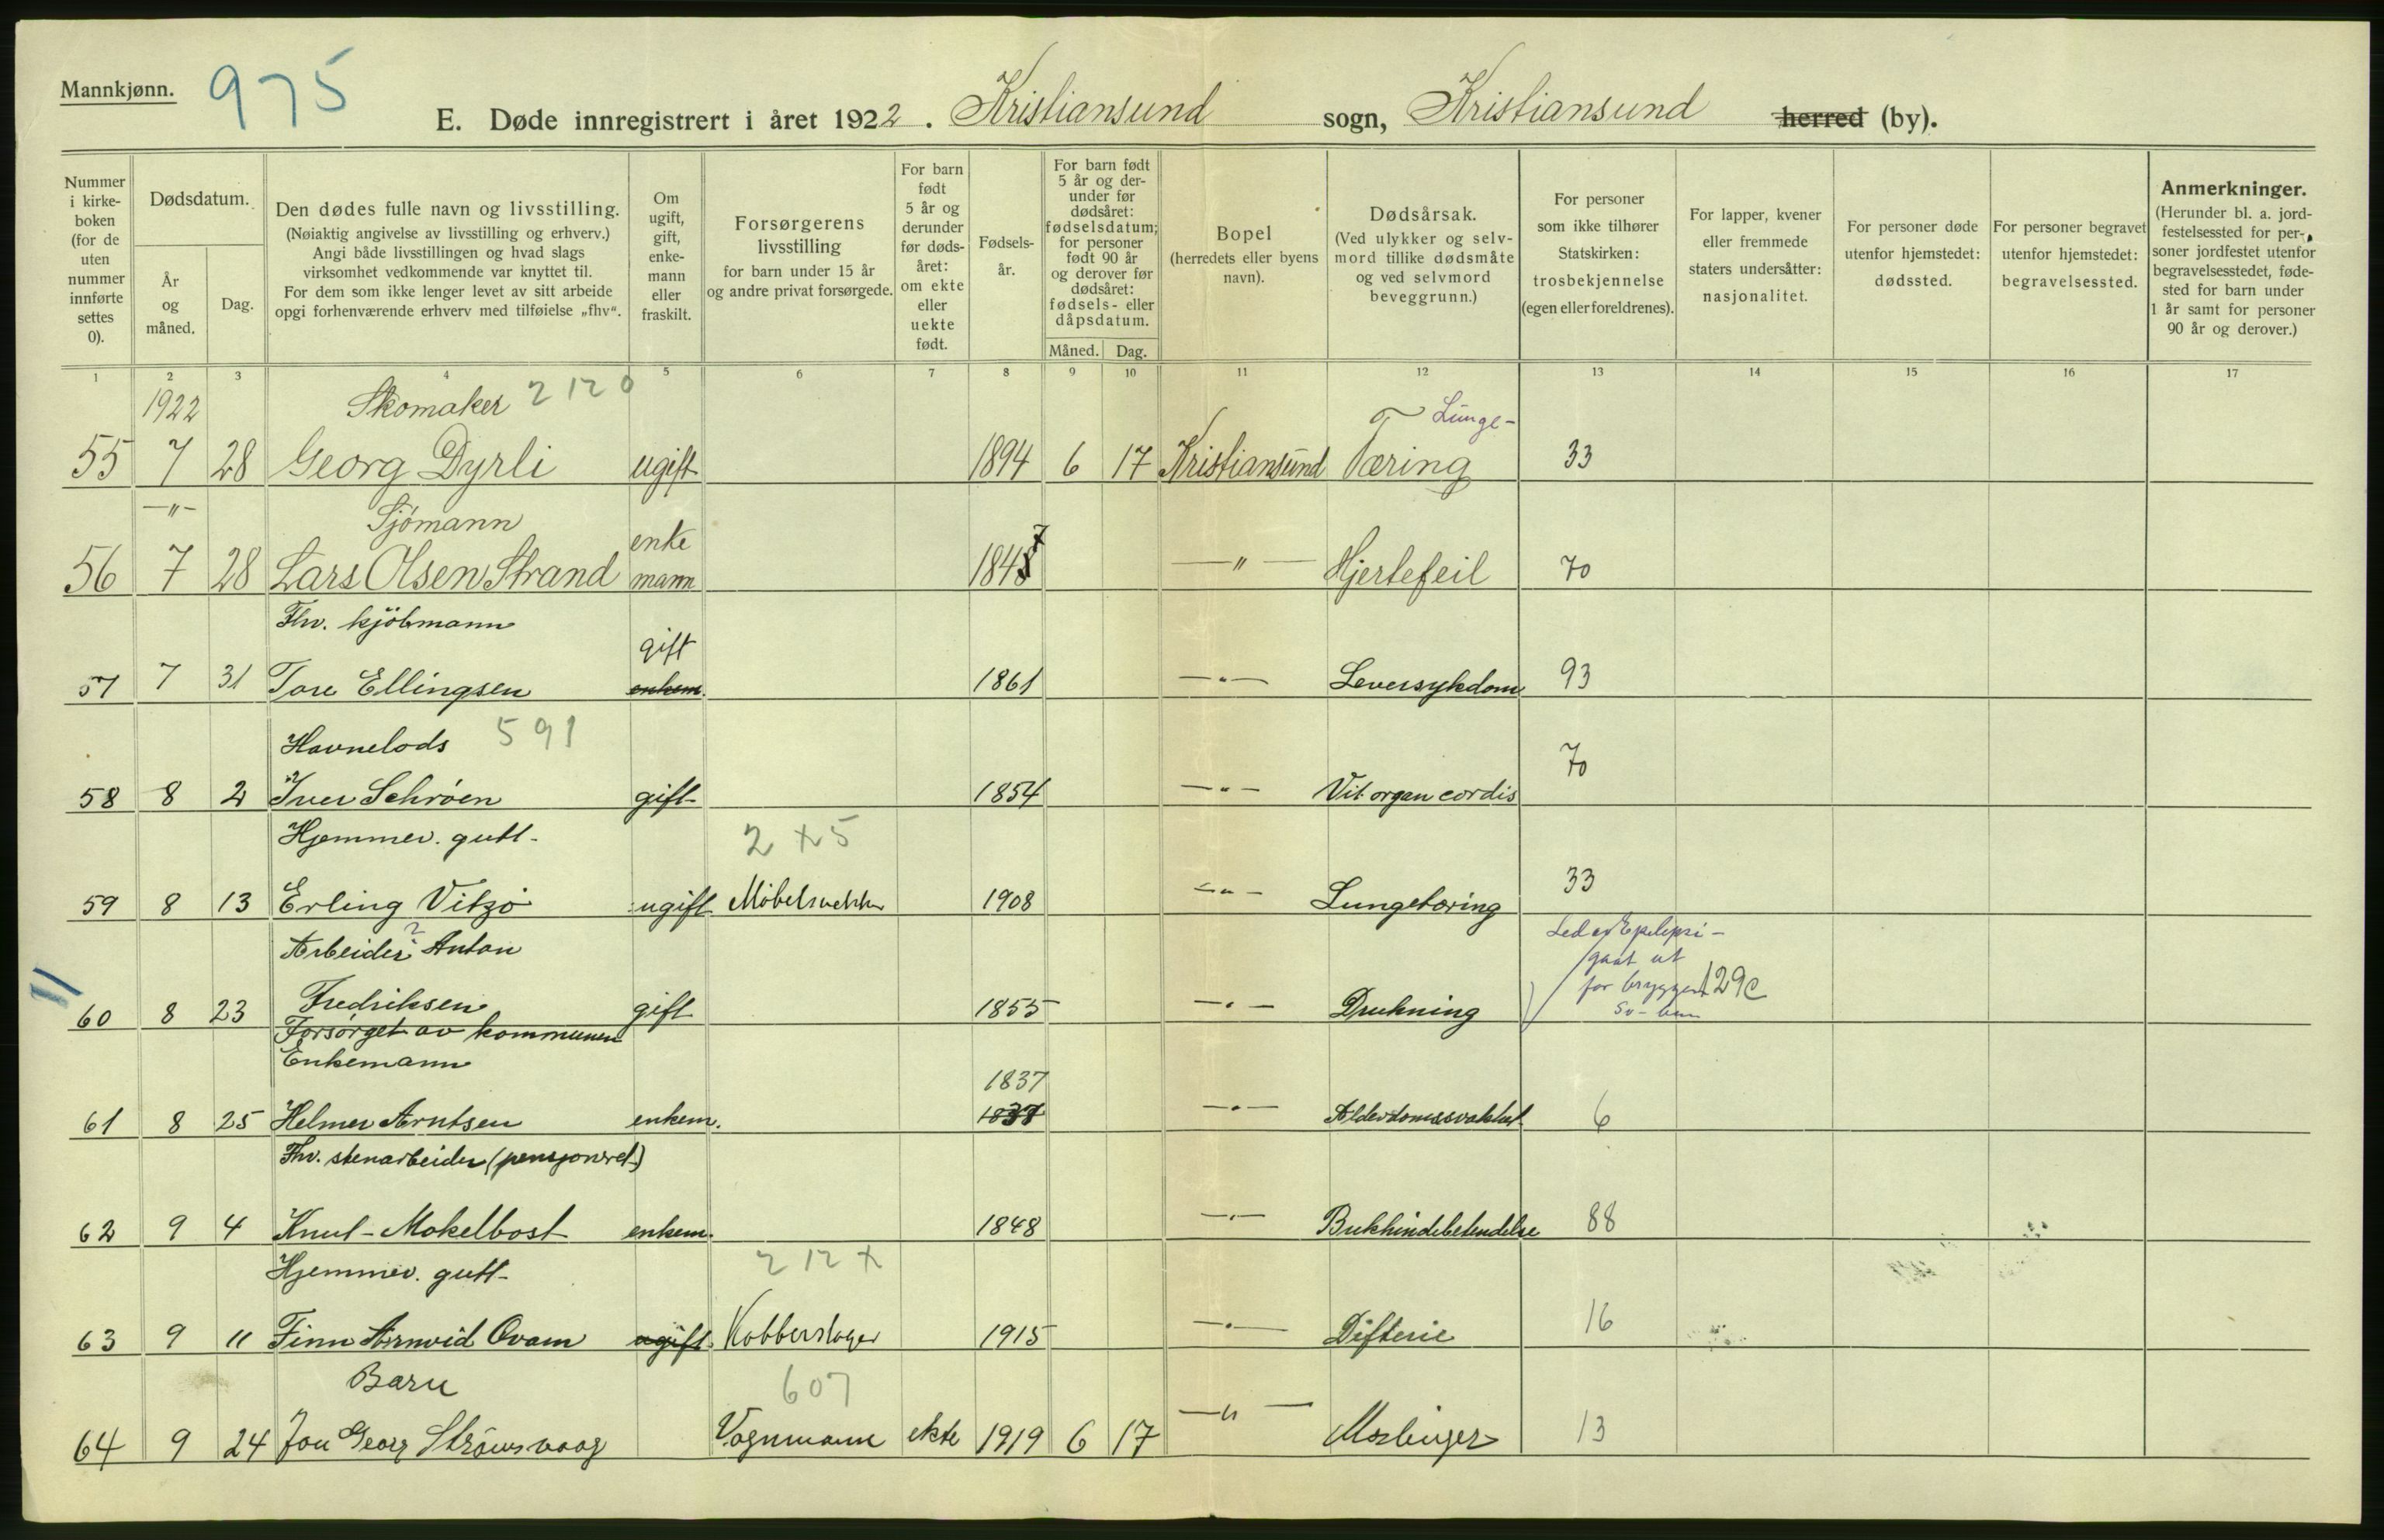 Mannkjønn.
975
E. Døde innregistrert i året 1922. Kristiansund sogn, Kristiansund herred (by).
Nummer i kirkeboken (for de uten nummer innførte settes 0).
Dødsdatum.
År og måned.
Dag.
Den dødes fulle navn og livsstilling.
(Nøiaktig angivelse av livsstilling og erhverv.)
Angi både livsstillingen og hvad slags
virksomhet vedkommende var knyttet til.
For dem som ikke lenger levet av sitt arbeide
opgi forhenværende erhverv med tilføielse „fhv“.
Om ugift, gift, enkemann eller fraskilt.
Forsørgerens livsstilling
for barn under 15 år
og andre privat forsørgede.
For barn født 5 år og derunder før dødsåret: om ekte eller uekte født.
Fødselsår.
For barn født 5 år og derunder før dødsåret: fødselsdatum; for personer født 90 år og derover før dødsåret: fødsels- eller dåpsdatum.
Måned. Dag.
Bopel
(herredets eller byens navn).
Dødsårsak.
(Ved ulykker og selvmord tillike dødsmåte og ved selvmord beveggrunn.)
For personer som ikke tilhører Statskirken: trosbekjennelse (egen eller foreldrenes).
For lapper, kvener eller fremmede staters undersåtter: nasjonalitet.
For personer døde utenfor hjemstedet: dødssted.
For personer begravet utenfor hjemstedet: begravelsessted.
Anmerkninger.
(Herunder bl. a. jordfestelsessted for personer jordfestet utenfor begravelsesstedet, fødested for barn under 1 år samt for personer 90 år og derover.)
1 2 3 4 5 6 7 8 9 10 11 12 13 14 15 16 17
1922 Skomaker 2120 Lunge-
55 7 28 Georg Dyrli ugift 1894 6 17 Kristiansund Tæring 33
-"- Sjømann enke 7
56 7 28 Lars Olsen Strand mann 1848 -"- Hjertefeil 70
Fhv. kjöbmann gift
57 7 31 Tore Ellingsen enkem. 1861 -"- Leversykdom 93
Havnelods 591
58 8 2 Iver Schrøen gift 1854 -"- Vit. organ cordis 70
Hjemmev. gutt- 2 x 5
59 8 13 Erling Vitzø ugift 1908 -"- Lungetæring 33
Arbeider Anton Led av Epilepsi -
gaat ut
60 8 23 Fredriksen gift 1855 -"- Drukning for bryggen 129c
Forsørget av kommunen
Enkemann 1837
61 8 25 Helmer Arntsen enkem. 1837 -"- Alderdomssvakhet 6
Fhv. stenarbeider (pensjonert)
62 9 4 Knut Mokelbost enkem. 1848 -"- Bukhindebetendelse 88
Hjemmev. gutt- 212 x
63 9 11 Finn Arnvid Ovam ugift. Kobberslager 1915 -"- Difterie 16
Barn 607
64 9 24 Jon Georg Strömsvaag Vognmann ekte 1919 6 17 -"- Mæslinger 13